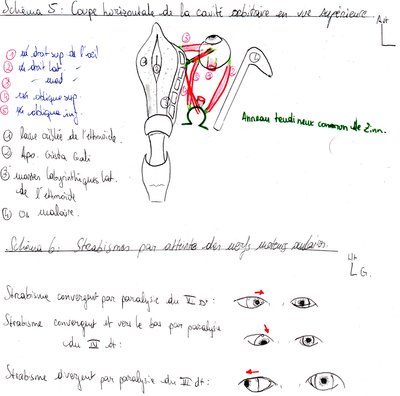 Schéma 5: Coupe horizontale de la cavité orbitaire en vue supérieure.
Avt
① m. droit sup. de l'œil
② m. droit lat. "
③ " med "
④ m. oblique sup.
⑤ m. oblique inf.
① lame criblée de l'ethmoïde.
② Apo. Crista Galli
③ masses labyrinthiques lat.
de l'ethmoïde
④ os malaire.
Anneau tendineux commun de Zinn.
Schéma 6: Strabismes par atteinte des nerfs moteurs oculaires.
Ht
G.
Strabisme convergent par paralysie du VI Dt:
Strabisme convergent et vers le bas par paralysie
du IV dt:
Strabisme divergent par paralysie du III dt: